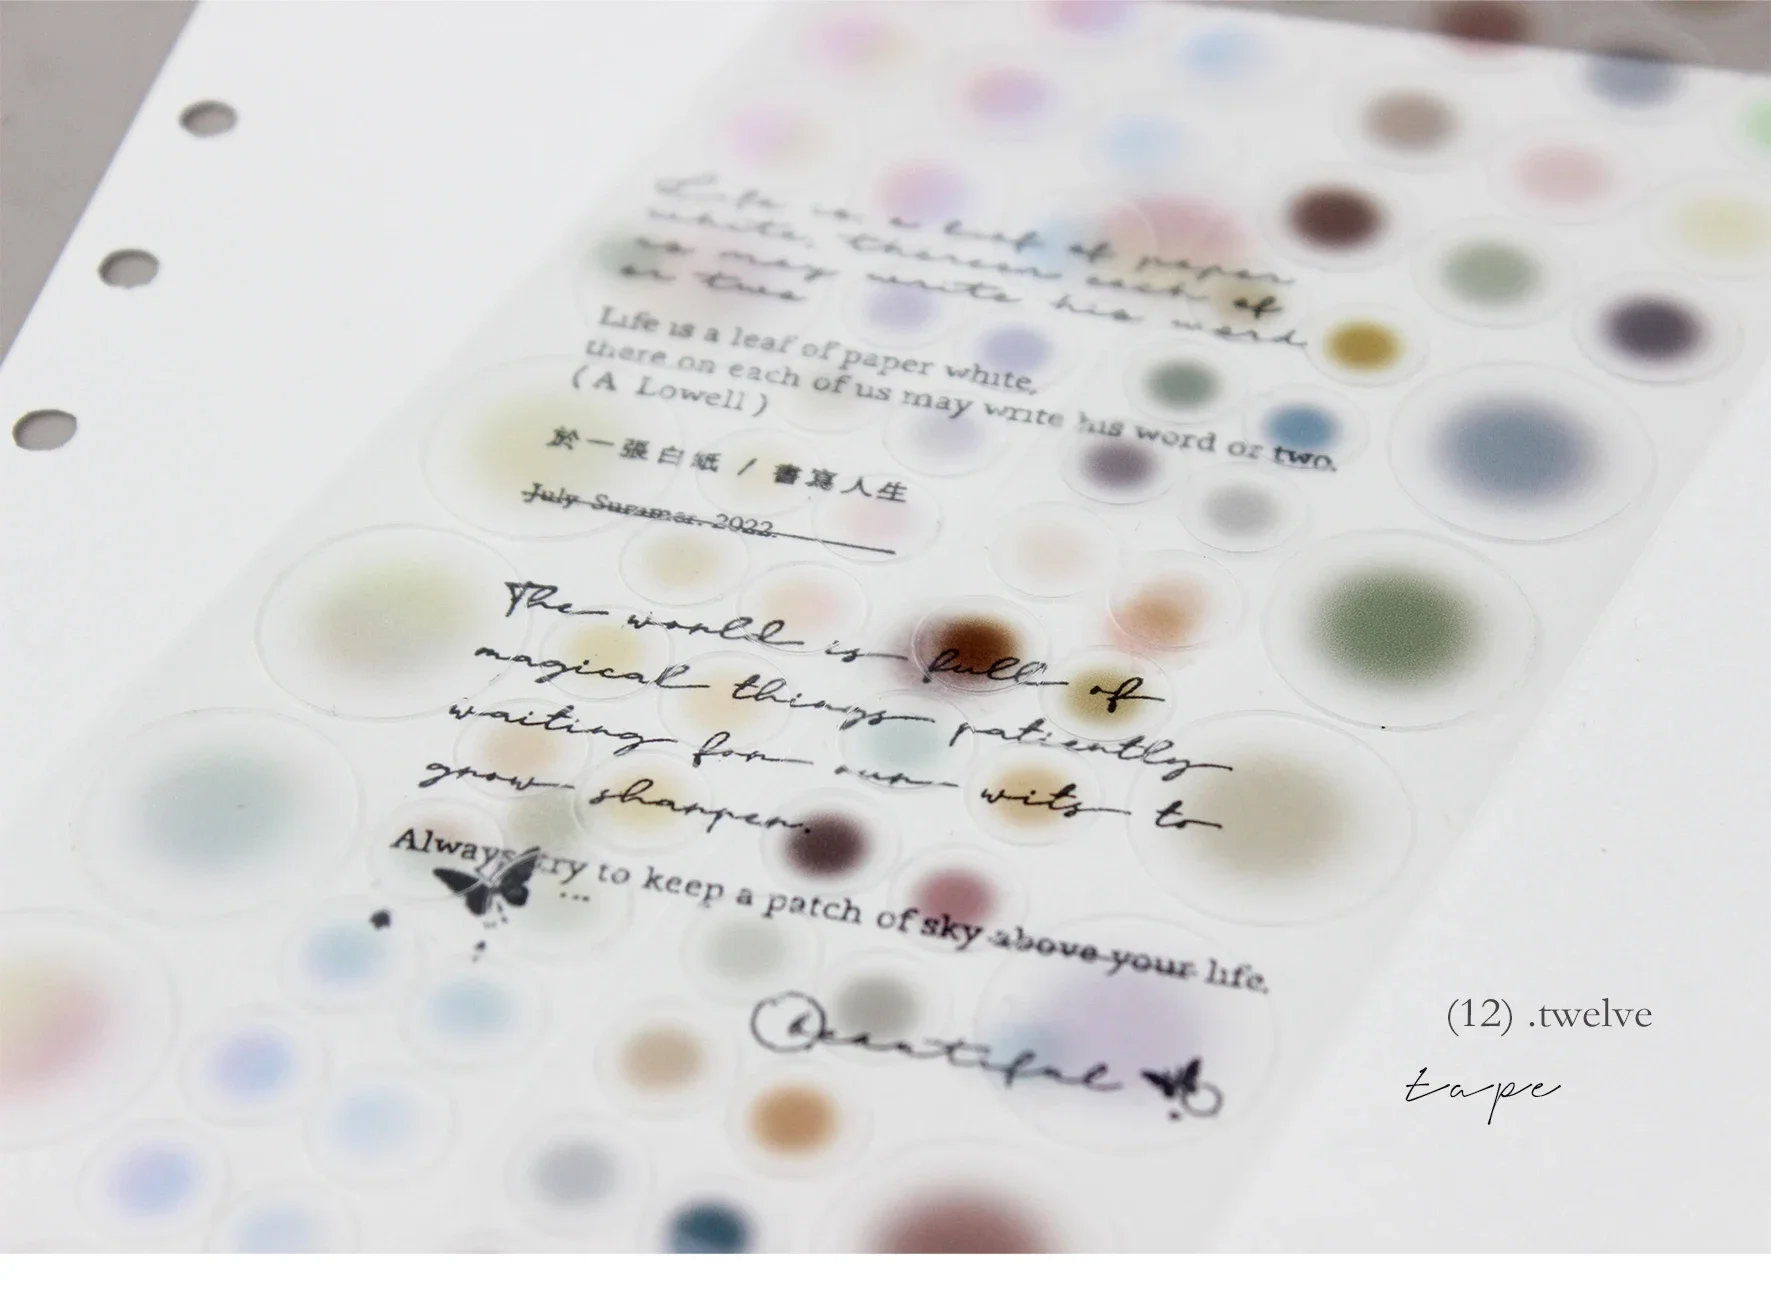 Life is a leaf of paper
white, thereon each of
us may write his word
or two
Life is a leaf of paper white,
there on each of us may write his word or two.
(A Lowell)
於一張白紙 / 書寫人生
July Summer. 2022.
The world is full of
magical things patiently
waiting for our wits to
grow sharper.
Always try to keep a patch of sky above your life.
...
beautiful
(12) .twelve
tape